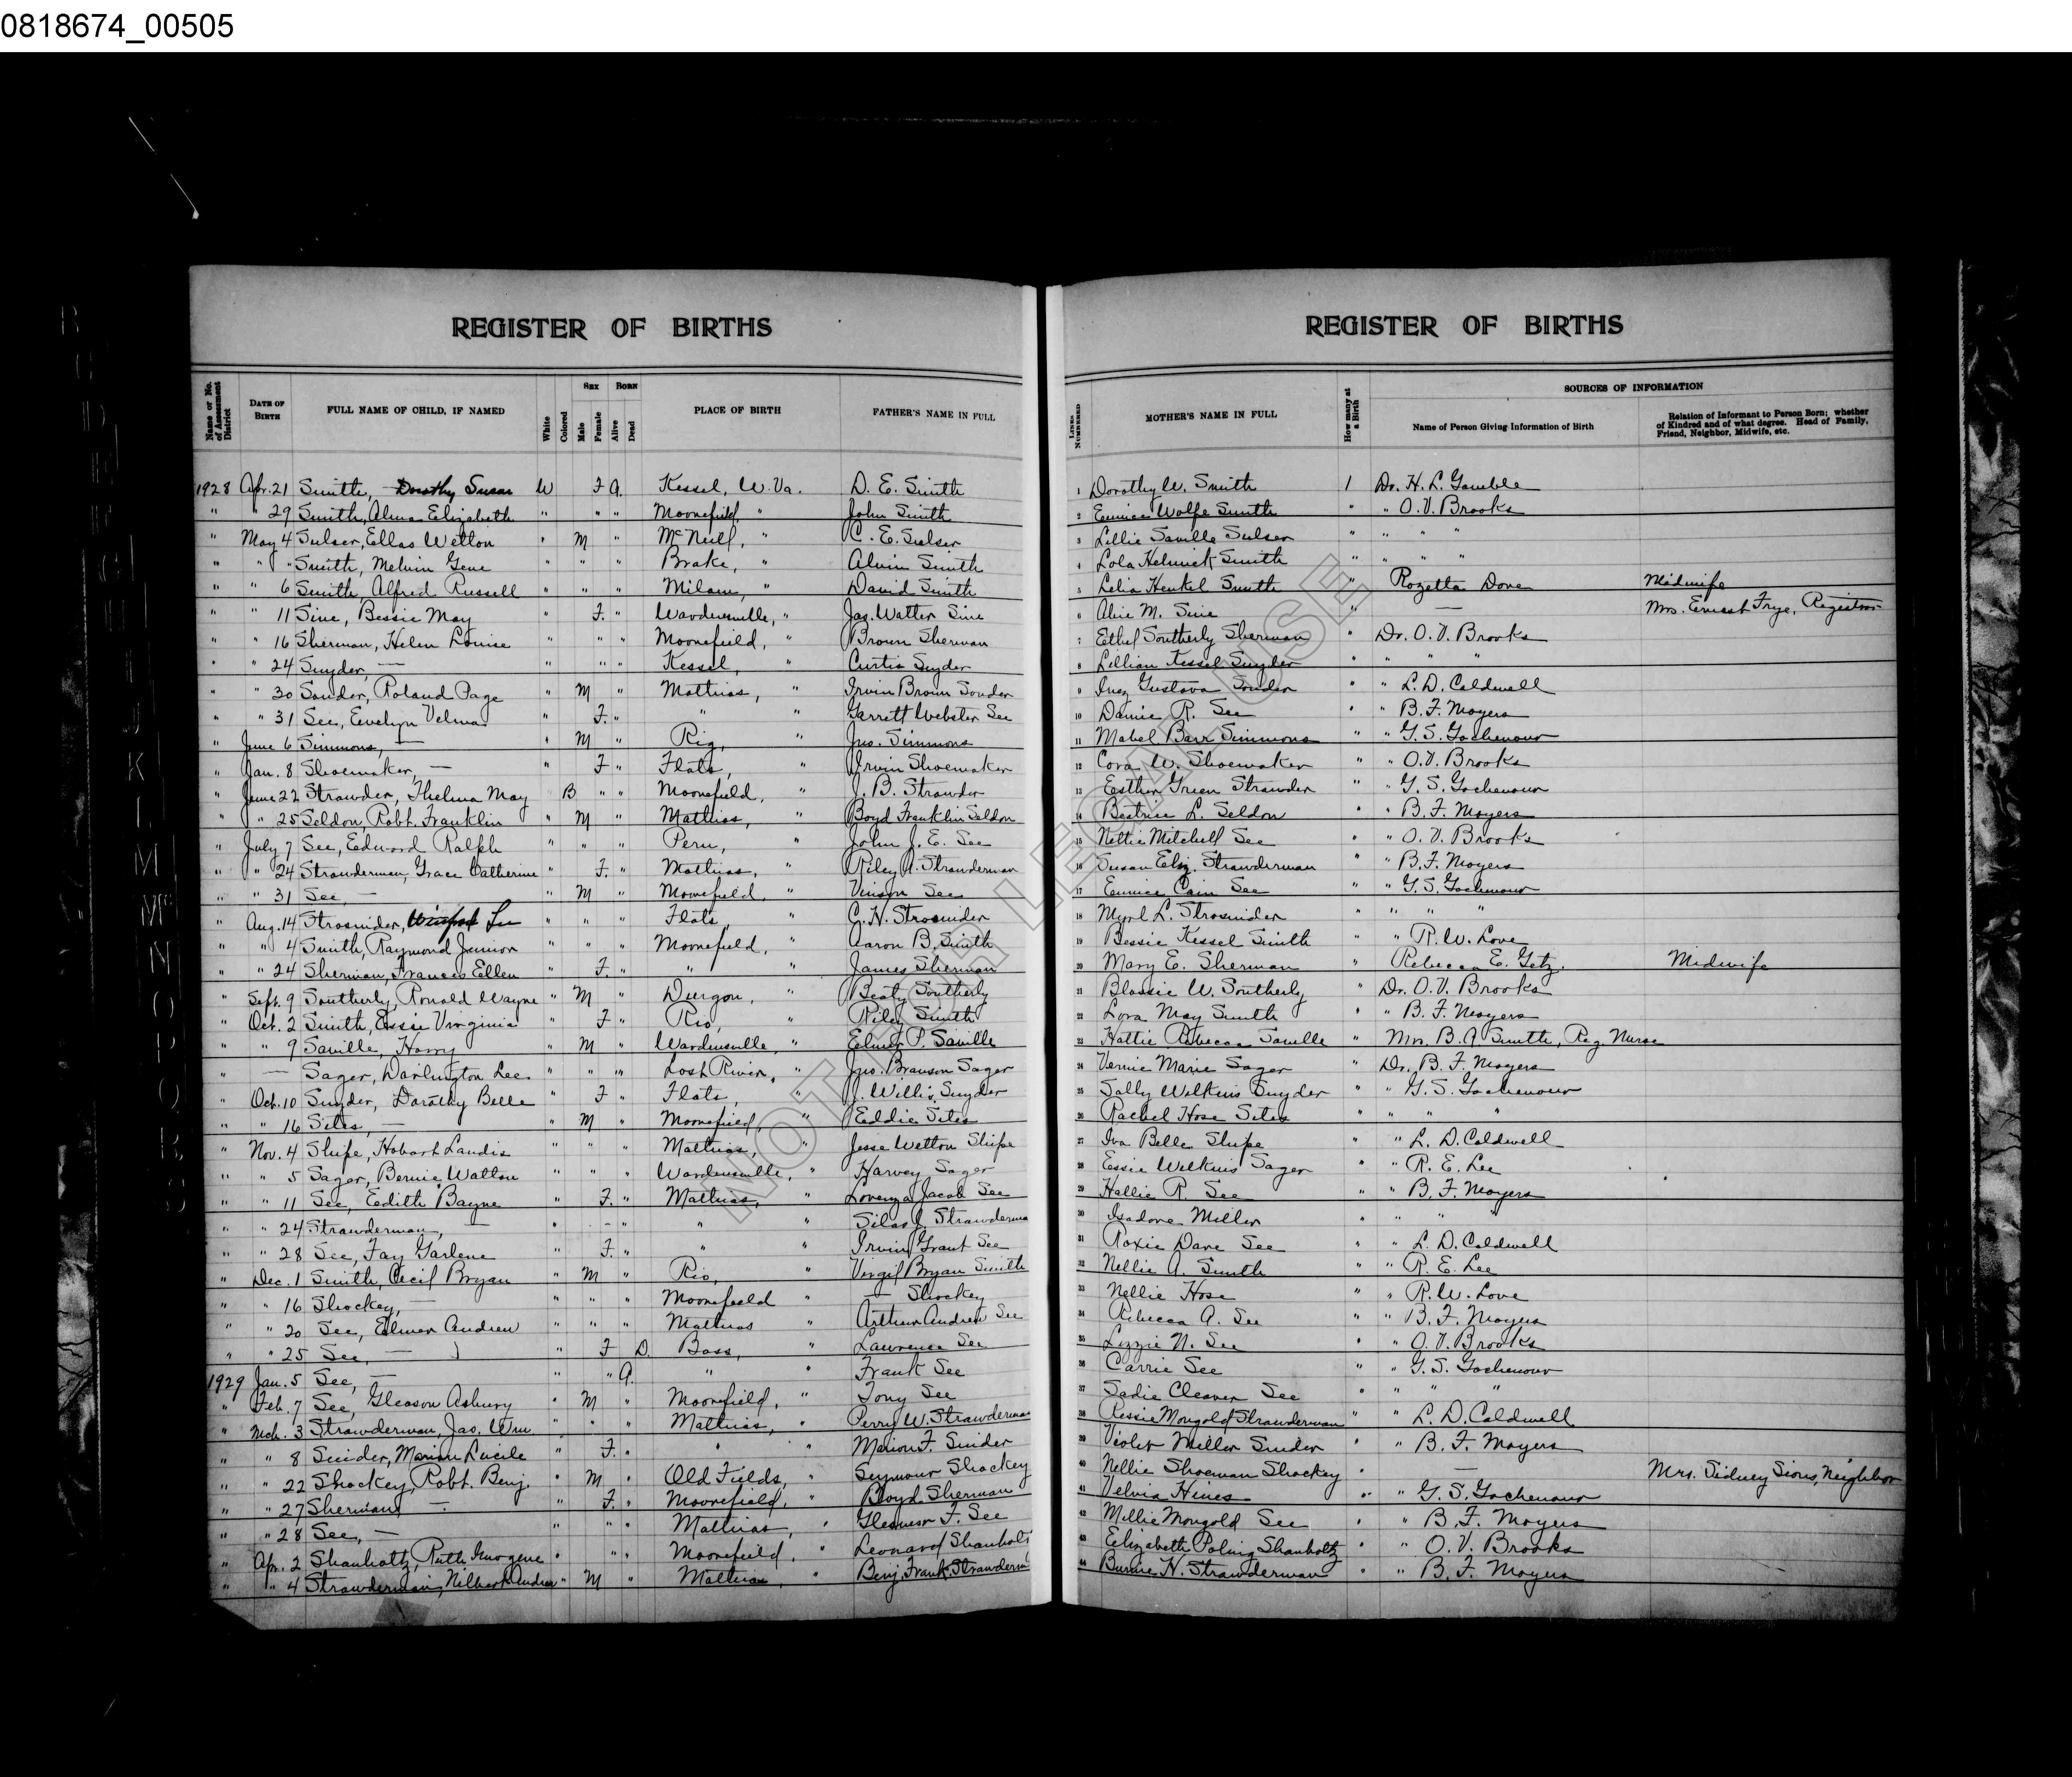 0818674_00505
REGISTER OF BIRTHS
Name or No. of Assessment District
DATE OF BIRTH
FULL NAME OF CHILD, IF NAMED
White
Colored
SEX
Male
Female
BORN
Alive
Dead
PLACE OF BIRTH
FATHER'S NAME IN FULL
REGISTER OF BIRTHS
LINES NUMBERED
MOTHER'S NAME IN FULL
How many at a Birth
SOURCES OF INFORMATION
Name of Person Giving Information of Birth
Relation of Informant to Person Born; whether of Kindred and of what degree. Head of Family, Friend, Neighbor, Midwife, etc.
1928 Apr. 21 Smith, Dorothy Susan W F A. Kessel, W. Va. D. E. Smith 1 Dorothy W. Smith 1 Dr. H. L. Gamble
" " 29 Smith, Alma Elizabeth " " " Moorefield, " John Smith 2 Eunice Wolfe Smith " " O. V. Brooks
" May 4 Sulser, Ellas Welton " M " McNeill, " C. E. Sulser 3 Lillie Saville Sulser " " " "
" " " Smith, Melvin Gene " " " Brake, " Alvin Smith 4 Lola Helmick Smith " " " "
" " 6 Smith, Alfred Russell " " " Milam, " David Smith 5 Lelia Henkel Smith " Rozetta Dove Midwife
" " 11 Sine, Bessie May " F. " Wardensville, " Jas. Walter Sine 6 Alice M. Sine " — Mrs. Ernest Frye, Registrar
" " 16 Sherman, Helen Louise " " " Moorefield, " Brown Sherman 7 Ethel Southerly Sherman " Dr. O. V. Brooks
" " 24 Snyder, — " " " Kessel, " Curtis Snyder 8 Lillian Kessel Snyder " " " "
" " 30 Sonder, Roland Page " M " Mathias, " Irvin Brown Sonder 9 Inez Gustava Sonder " " L. D. Caldwell
" " 31 See, Evelyn Velma " F. " " " Garrett Webster See 10 R. See " " B. F. Moyers
" June 6 Simmons, — " M " Rig, " Jno. Simmons 11 Mabel Barr Simmons " " G. S. Gochenour
" Jan. 8 Shoemaker, — " F " Flats, " Irvin Shoemaker 12 Cora W. Shoemaker " " O. V. Brooks
" June 22 Strawder, Thelma May B " " Moorefield, " J. B. Strawder 13 Esther Green Strawder " " G. S. Gochenour
" " 25 Seldon, Robt. Franklin " M " Mathias, " Boyd Franklin Seldon 14 Beatrice L. Seldon " " B. F. Moyers
" July 7 See, Edward Ralph " " " Peru, " John J. E. See 15 Nettie Mitchell See " " O. V. Brooks
" " 24 Strawderman, Grace Catherine " F. " Mathias, " Riley A. Strawderman 16 Susan Eliz. Strawderman " " B. F. Moyers
" " 31 See, — " M " Moorefield, " Vinson See 17 Eunice Cain See " " G. S. Gochenour
" Aug. 14 Strosnider, Lee " " " Flats, " C. H. Strosnider 18 Myrl L. Strosnider " " " "
" " 4 Smith, Raymond Junior " " " Moorefield, " Aaron B. Smith 19 Bessie Kessel Smith " " R. W. Love
" " 24 Sherman, Frances Ellen " F. " " " James Sherman 20 Mary E. Sherman " Rebecca E. Getz. Midwife
" Sept. 9 Southerly, Ronald Wayne " M " Durgon, " Beaty Southerly 21 Blossie W. Southerly " Dr. O. V. Brooks
" Oct. 2 Smith, Essie Virginia " F " Rio, " Riley Smith 22 Lora May Smith " " B. F. Moyers
" " 9 Saville, Harry " M " Wardensville, " Elmer P. Saville 23 Hattie Rebecca Saville " Mrs. B. A Smith, Reg. Nurse
" — Sager, Darlington Lee " " " Lost River, " Jno. Branson Sager 24 Vernie Marie Sager " Dr. B. F. Moyers
" Oct. 10 Snyder, Dorothy Belle " F " Flats, " J. Willis Snyder 25 Sally Wilkins Snyder " " G. S. Gochenour
" " 16 Sites, — " M " Moorefield, " Eddie Sites 26 Rachel Hose Sites " " " "
" Nov. 4 Shipe, Hobart Landis " " " Mathias, " Jesse Welton Shipe 27 Iva Belle Shipe " " L. D. Caldwell
" " 5 Sager, Bernie Walton " " " Wardensville, " Harvey Sager 28 Essie Wilkins Sager " " R. E. Lee
" " 11 See, Edith Bayne " F. " Mathias, " Lorenza Jacob See 29 Hallie R. See " " B. F. Moyers
" " 24 Strawderman, — " - " " " Silas J. Strawderman 30 Isadore Miller " " " "
" " 28 See, Fay Garlene " F. " " " Irvin Grant See 31 Roxie Dove See " " L. D. Caldwell
" Dec. 1 Smith, Cecil Bryan " M " Rio, " Virgil Bryan Smith 32 Nellie A. Smith " " R. E. Lee
" " 16 Shockey, — " " " Moorefield " — Shockey 33 Nellie Hose " " R. W. Love
" " 20 See, Elmer Andrew " " " Mathias " Arthur Andrew See 34 Rebecca A. See " " B. F. Moyers
" " 25 See, — " F D. Bass, " Lawrence See 35 Lizzie N. See " " O. V. Brooks
1929 Jan. 5 See, — " " A. " " Frank See 36 Carrie See " " G. S. Gochenour
" Feb. 7 See, Gleason Asbury " M " Moorefield, " Tony See 37 Sadie Cleaver See " " " "
" Mch. 3 Strawderman, Jas. Wm. " " " Mathias, " Perry W. Strawderman 38 Ressie Mongold Strawderman " " L. D. Caldwell
" " 8 Snider, Marian Lucile " F. " " " Marion F. Snider 39 Violet Miller Snider " " B. F. Moyers
" " 22 Shockey, Robt. Benj. " M " Old Fields, " Seymour Shockey 40 Nellie Shoeman Shockey " — Mrs. Sidney Sions, Neighbor
" " 27 Sherman, — " F. " Moorefield, " Boyd Sherman 41 Velvia Hines " " G. S. Gochenour
" " 28 See, — " " " Mathias, " F. See 42 Millie Mongold See " " B. F. Moyers
" Apr. 2 Shanholtz, Ruth Imogene " " " Moorefield, " Leonard Shanholtz 43 Elizabeth Poling Shanholtz " " O. V. Brooks
" " 4 Strawderman, Andrew " M " Mathias, " Benj. Frank. Strawderm 44 H. Strawderman " " B. F. Moyers
NOT FOR LEGAL USE